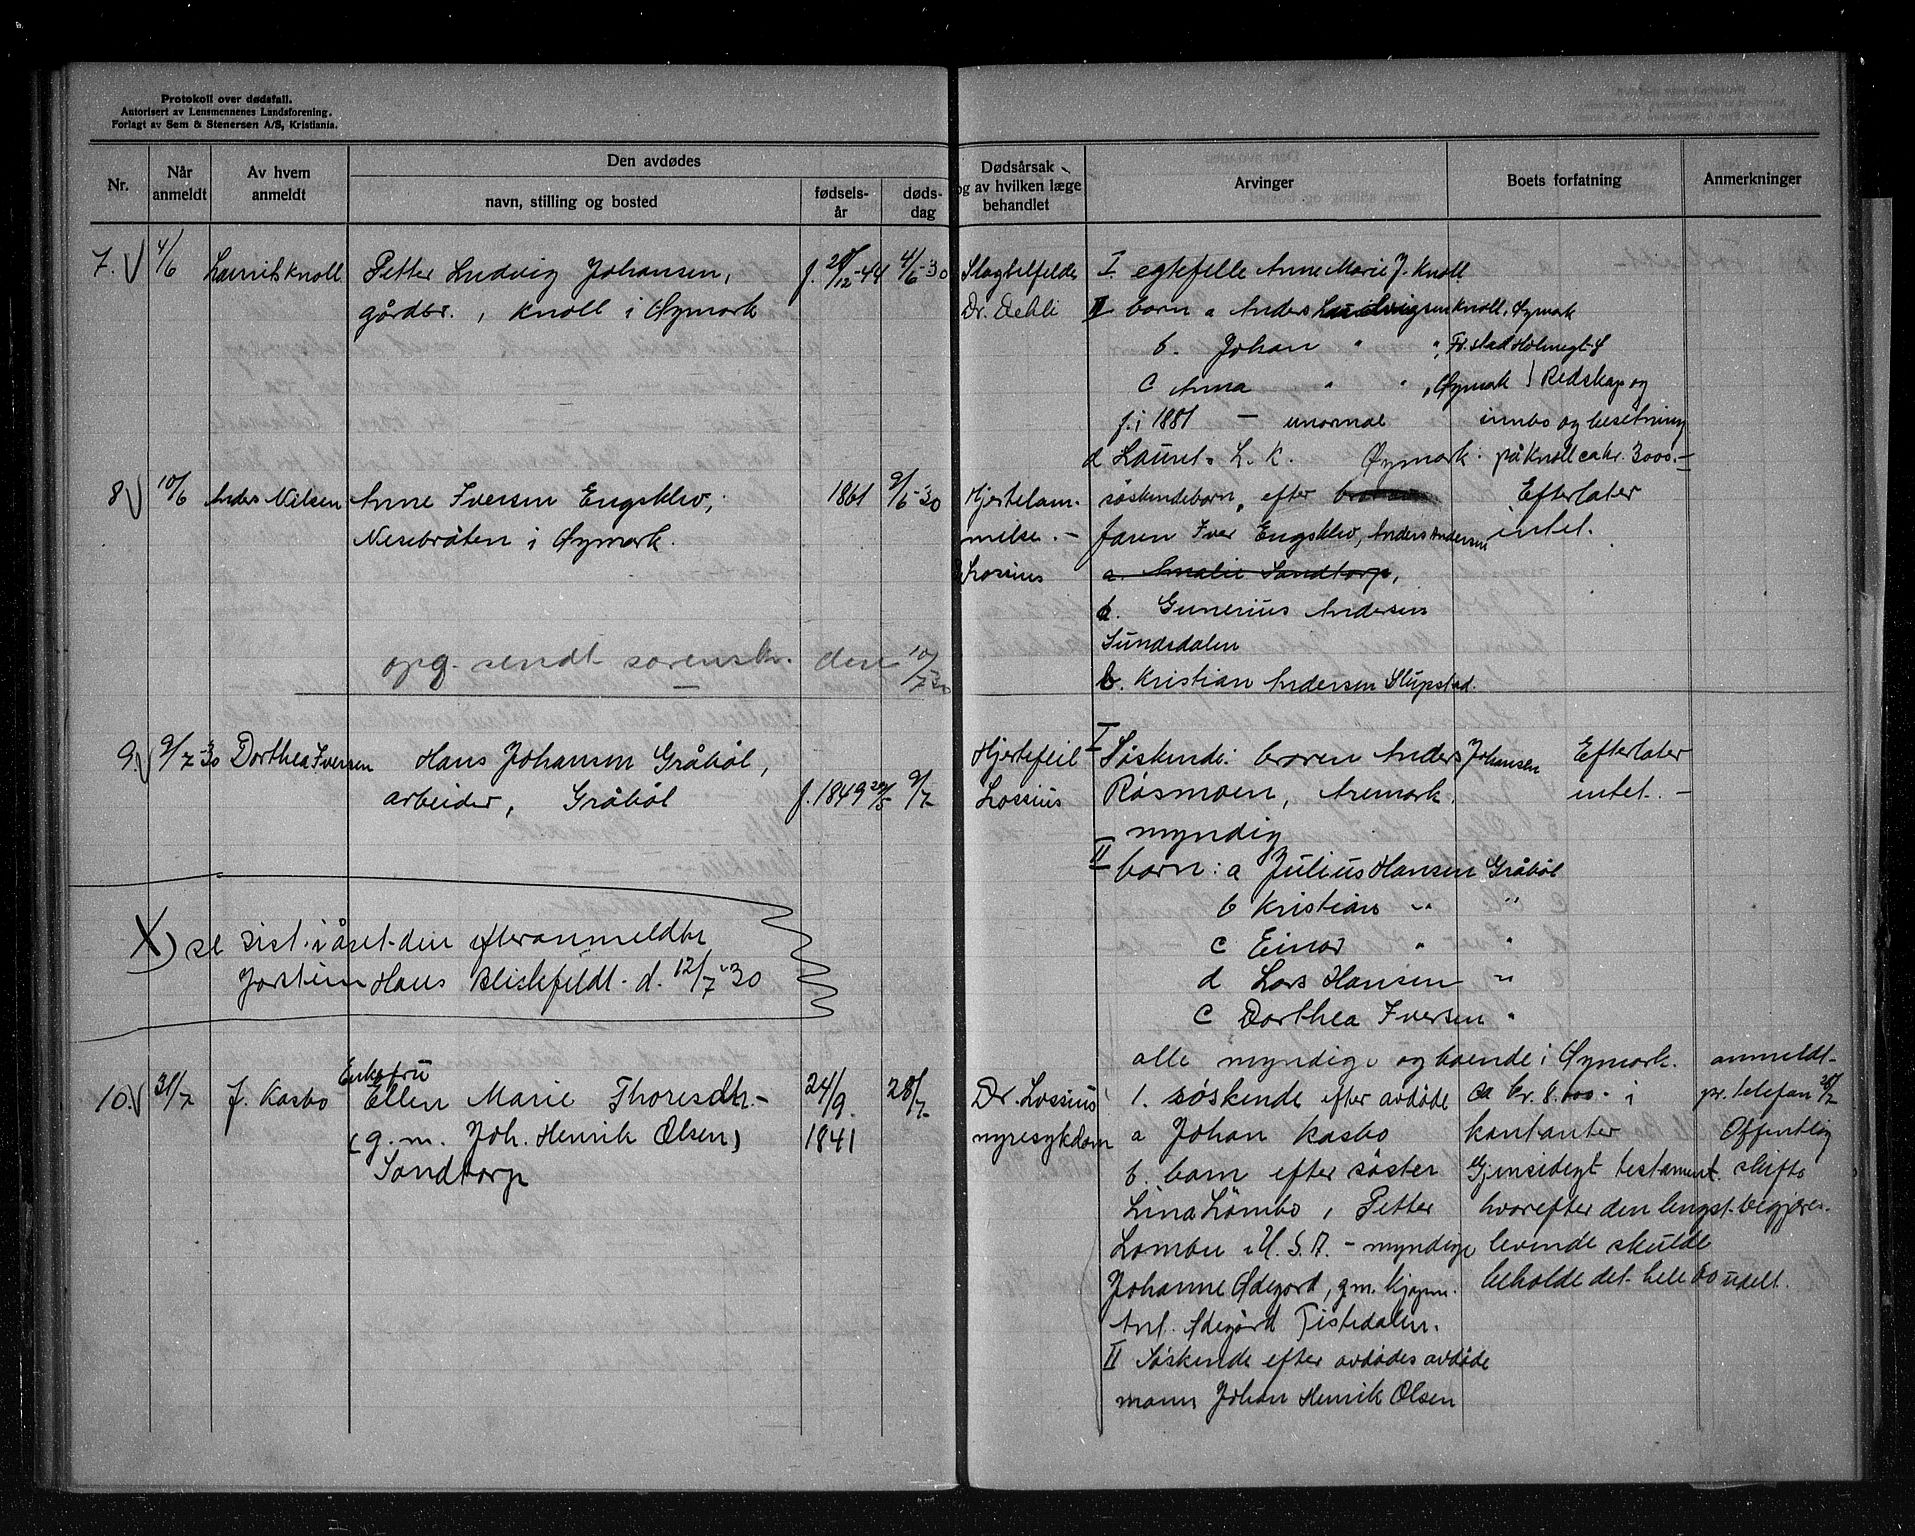 Protokoll over dødsfall.
Autorisert av Lensmennenes Landsforening.
Forlagt av Sem & Stenersen A/S, Kristiania.
Nr.
Når anmeldt
Av hvem anmeldt
Den avdødes
navn, stilling og bosted
fødsels-år
døds-dag
Dødsårsak og av hvilken læge behandlet
Arvinger
Boets forfatning
Anmerkninger
7. 4/6 Laurits Knoll Petter Ludvig Johansen, f. 28/12-44 4/6-30
gårdbr., Knoll i Øymark
Slagtilfelde
Dr. Dehli
I egtefelle Anne Marie J. Knoll
II born a Anders Ludvigsen Knoll, Øymark
b. Johan " ", Fr.stad Holmegt.
c Anna " ", Øymark
f. i 1881 — unormal
d Lauret. L. K. Øymark.
Redskap og
innbo og besetning
på Knoll ca kr. 3000.—
8 10/6 Anders Nilsen Anne Iversen Engsklev, 1861 9/6-30
Nesebråten i Øymark.
Hjertelam-
melse. -
Lossius
søskendeborn, efter
faren Iver Engsklev, Anders Andersen
a. Amalie Sandtorp,
b. Gunerius Andersen
Sundsdalen
b. Kristian Andersen Slupstad.
Efterlater
intet.
opg. sendt sorenskr. den 10/7 30
9. 9/7-30 Dorthea Iversen Hans Johansen Gråbøl,
arbeider, Gråbøl f. 1849 29/5 9/7
Hjertefeil
Lossius
I Søskende: broren Anders Johansen
Røsmoen, Aremark.
myndig
II born: a Julius Hansen Gråbøl
b Kristian " "
c Einar " "
d Lars Hansen "
c Dorthea Iversen "
alle myndige og boende i Øymark.
Efterlater
intet. -
X) se sist i året den efteranmeldte
Jorstein Hans Bliskfeldt. d. 12/7-30
10. 31/7 J. Kasbo Enkefru
Ellen Marie Thoresdtr. - 24/9. 28/7
(g. m. Joh. Henrik Olsen) 1841
Sandtorp
Dr. Lossius
nyresykdom
1. søskende efter avdøde
a Johan Kasbo
b. barn efter søster
Lina Lømbo, Petter
Lombu i U.S.A. - myndige
Johanne Ødegård, g.m.
Ant. Ødegård Tistedalen.
II Søskende efter avdødes avdøde
mann Johan Henrik Olsen
ca kr. 8.000.- i
kontanter
Gjensidigt testament
hvorefter den lengst-
levende skulde
beholde det hele bo udelt.
anmeldt
pr. telefon 28/7
Offentlig
skifte
begjæres.